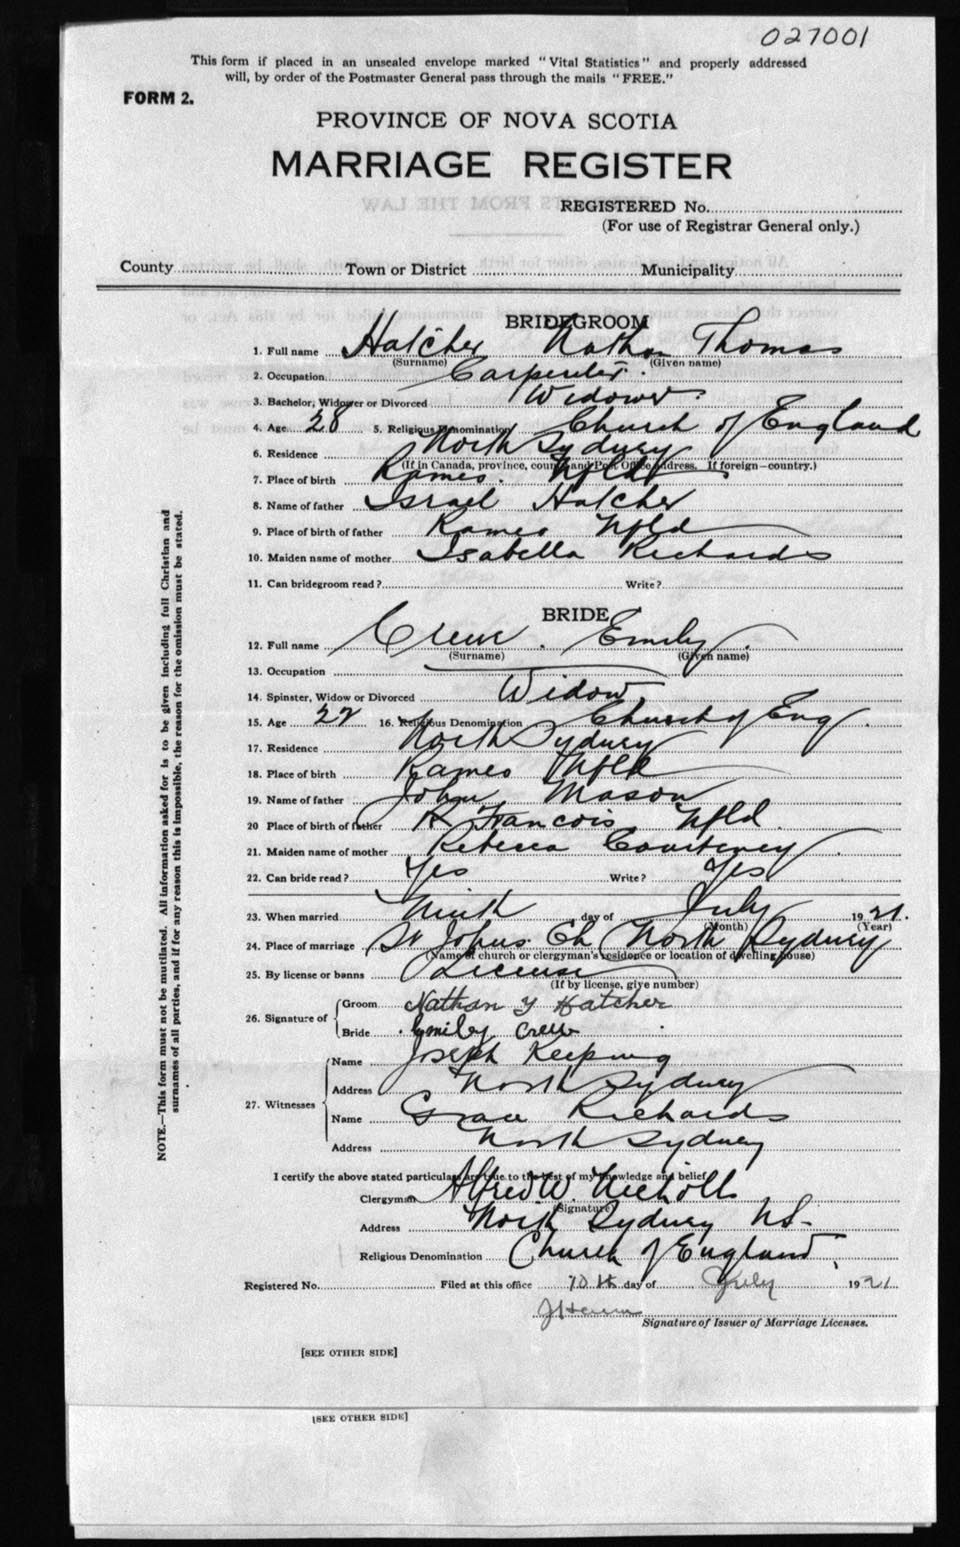 027001
This form if placed in an unsealed envelope marked "Vital Statistics" and properly addressed
will, by order of the Postmaster General pass through the mails "FREE."
FORM 2.
PROVINCE OF NOVA SCOTIA
MARRIAGE REGISTER
REGISTERED No.
(For use of Registrar General only.)
County Town or District Municipality
BRIDEGROOM
1. Full name Hatcher Nathan Thomas
(Surname) (Given name)
2. Occupation Carpenter
3. Bachelor, Widower or Divorced Widower
4. Age 28 5. Religious Denomination Church of England
6. Residence North Sydney
(If in Canada, province, county and Post Office address. If foreign—country.)
7. Place of birth Rameo. Nfld
8. Name of father Israel Hatcher
9. Place of birth of father Rameo Nfld
10. Maiden name of mother Isabella Richards
11. Can bridegroom read? Write?
BRIDE
12. Full name Crewe. Emily.
(Surname) (Given name)
13. Occupation
14. Spinster, Widow or Divorced Widow
15. Age 22 16. Religious Denomination Church of Eng
17. Residence North Sydney
18. Place of birth Rameo Nfld
19. Name of father John Mason
20 Place of birth of father R Francois Nfld.
21. Maiden name of mother Rebecca Courteney
22. Can bride read? Yes Write? Yes
23. When married Ninth day of July 1921.
(Month) (Year)
24. Place of marriage St Johns Ch North Sydney
(Name of church or clergyman's residence or location of dwelling house)
25. By license or banns License
(If by license, give number)
26. Signature of Groom Nathan T Hatcher
Bride Emiley Crew
27. Witnesses Name Joseph Keeping
Address North Sydney
Name Grace Richards
Address North Sydney
I certify the above stated particulars are true to the best of my knowledge and belief.
Clergyman Alfred W. Nicholls
(Signature)
Address North Sydney NS-
Religious Denomination Church of England.
Registered No. Filed at this office 10th day of July 1921
Signature of Issuer of Marriage Licenses.
[SEE OTHER SIDE]
[SEE OTHER SIDE]
NOTE.—This form must not be mutilated. All information asked for is to be given including full Christian and
surnames of all parties, and if for any reason this is impossible, the reason for the omission must be stated.